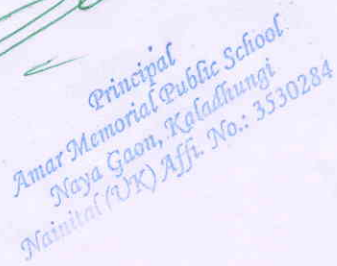 Principal
Amar Memorial Public School
Naya Gaon, Kaladhungi
Nainital (UK) Affi. No.: 3530284